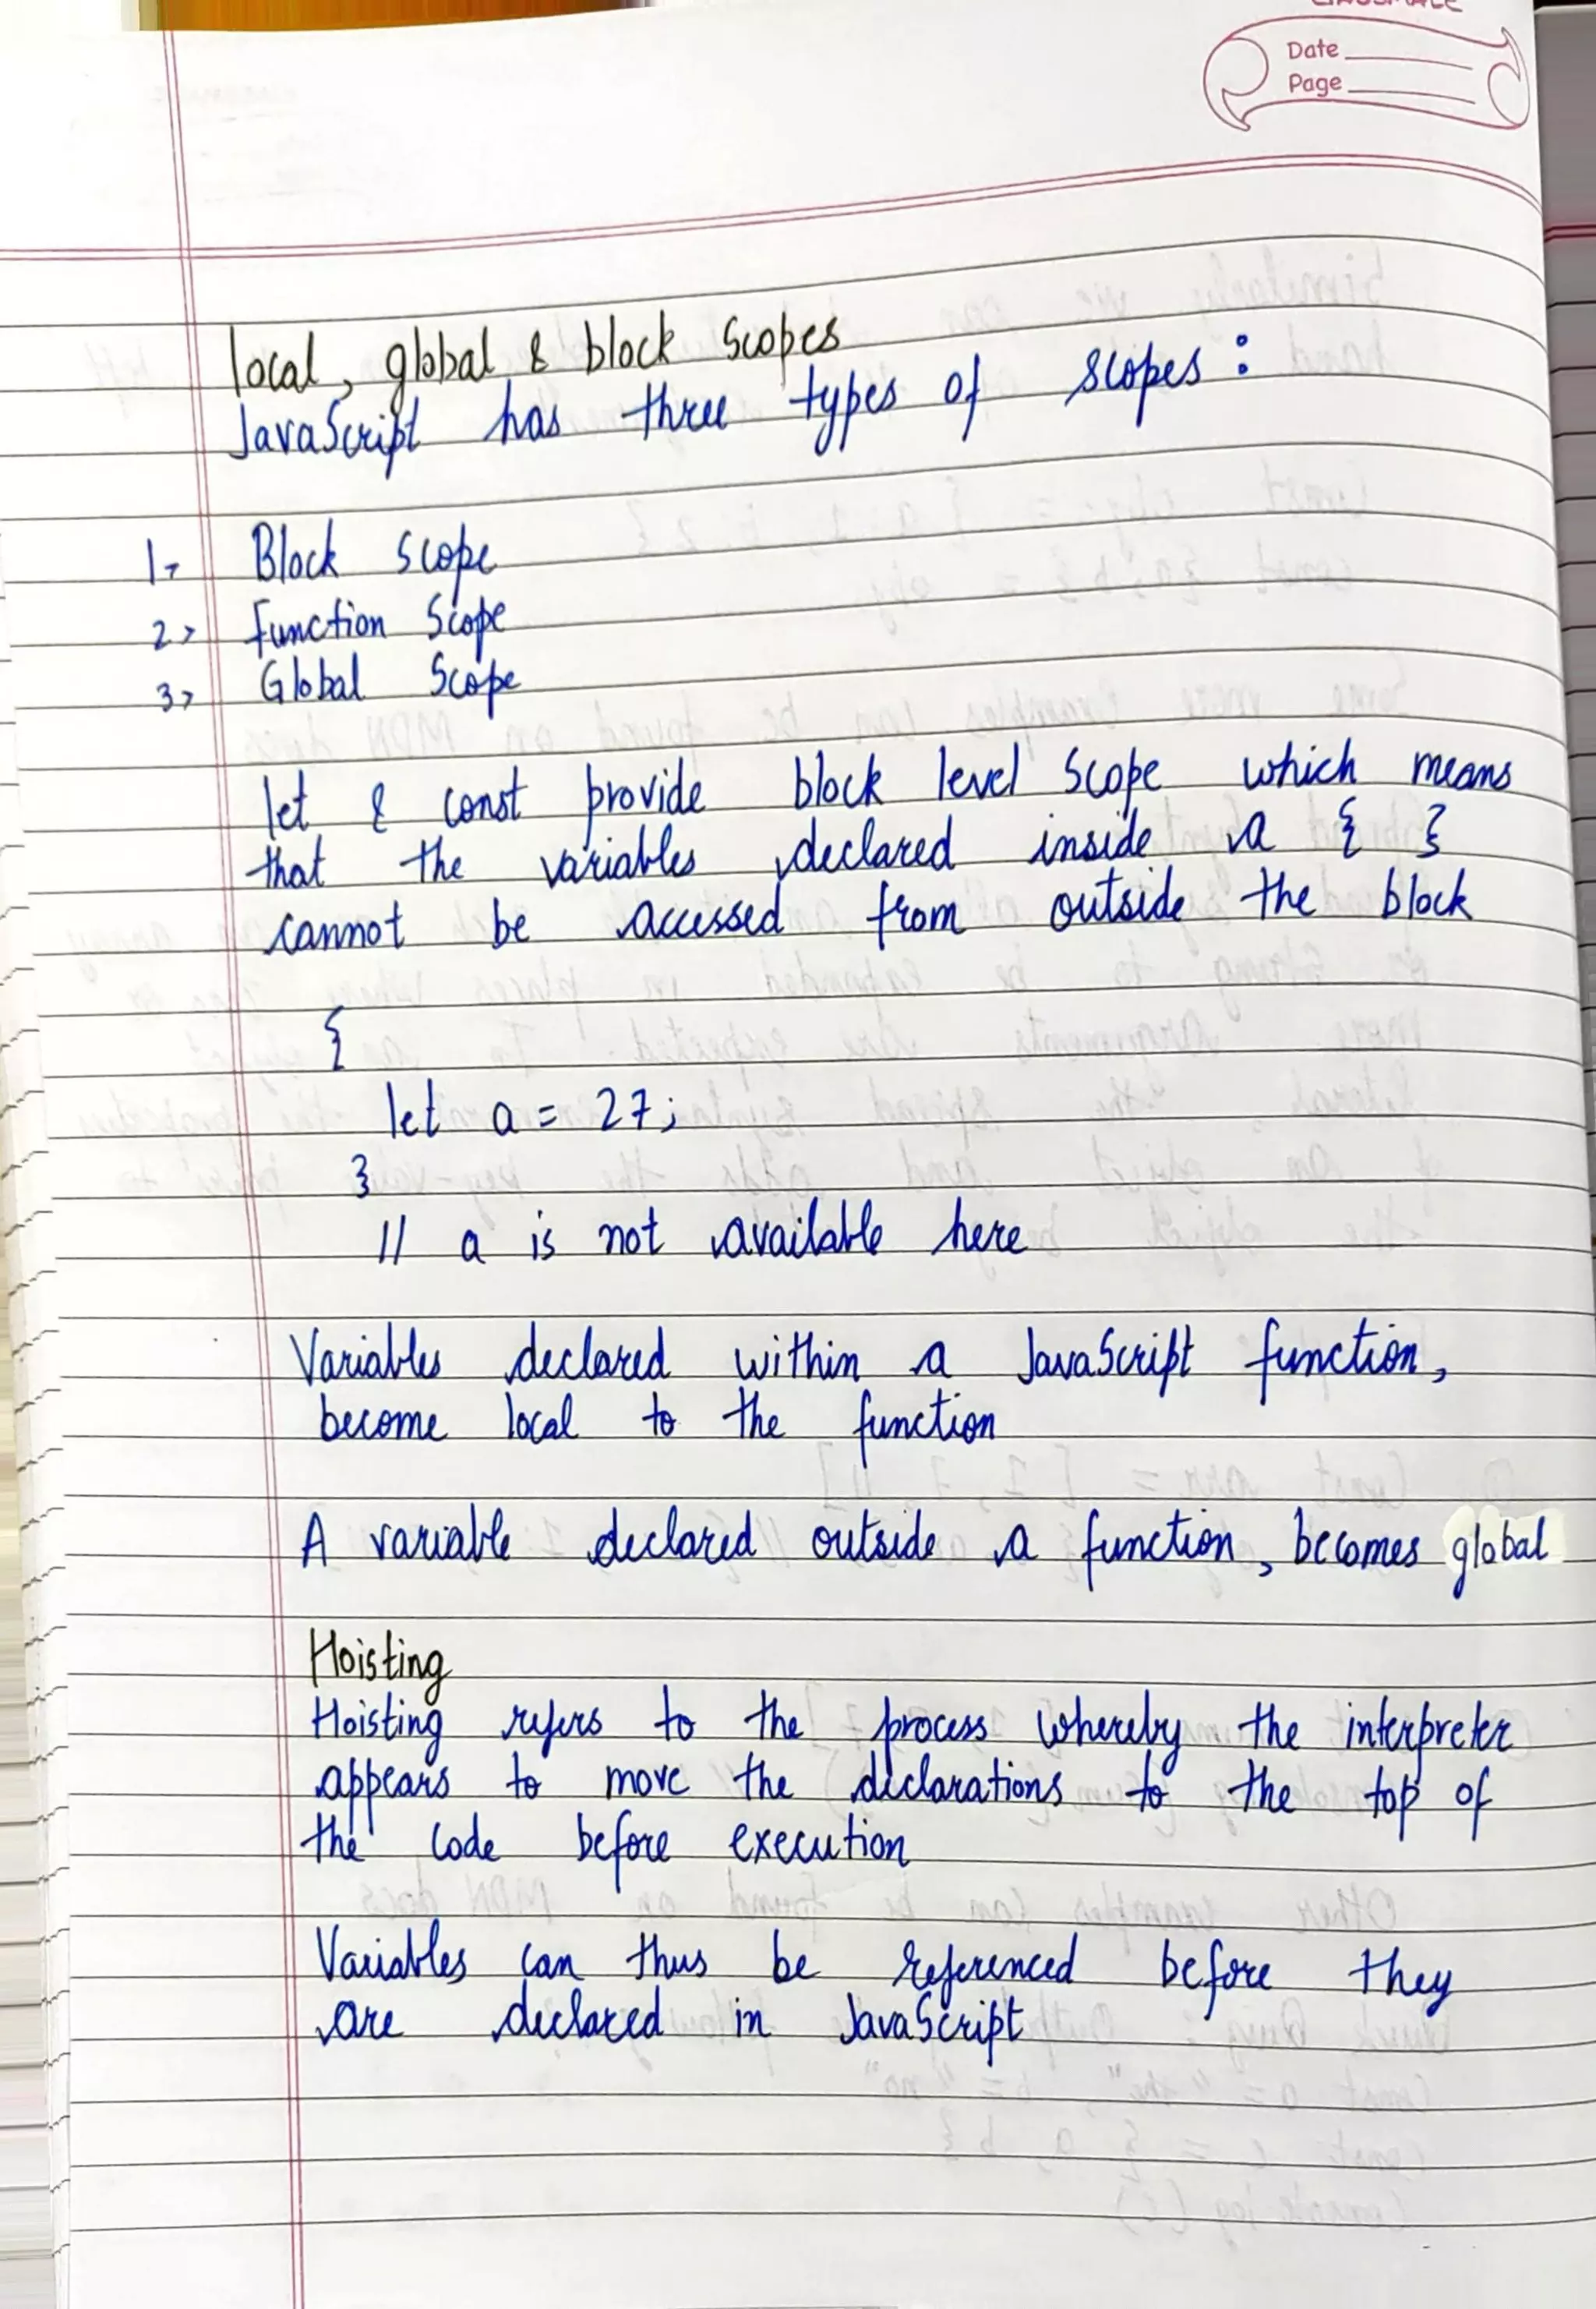 Date
Page
local, global & block scopes
JavaScript has three types of scopes :
1→ Block Scope
2> function Scope
3> Global Scope
let & const provide block level scope which means
that the variables declared inside a { }
cannot be accessed from outside the block
{
let a = 27;
}
// a is not available here
Variables declared within a JavaScript function,
become local to the function
A variable declared outside a function, becomes global
Hoisting
Hoisting refers to the process whereby the interpreter
appears to move the declarations to the top of
the code before execution
Variables can thus be referenced before they
are declared in JavaScript